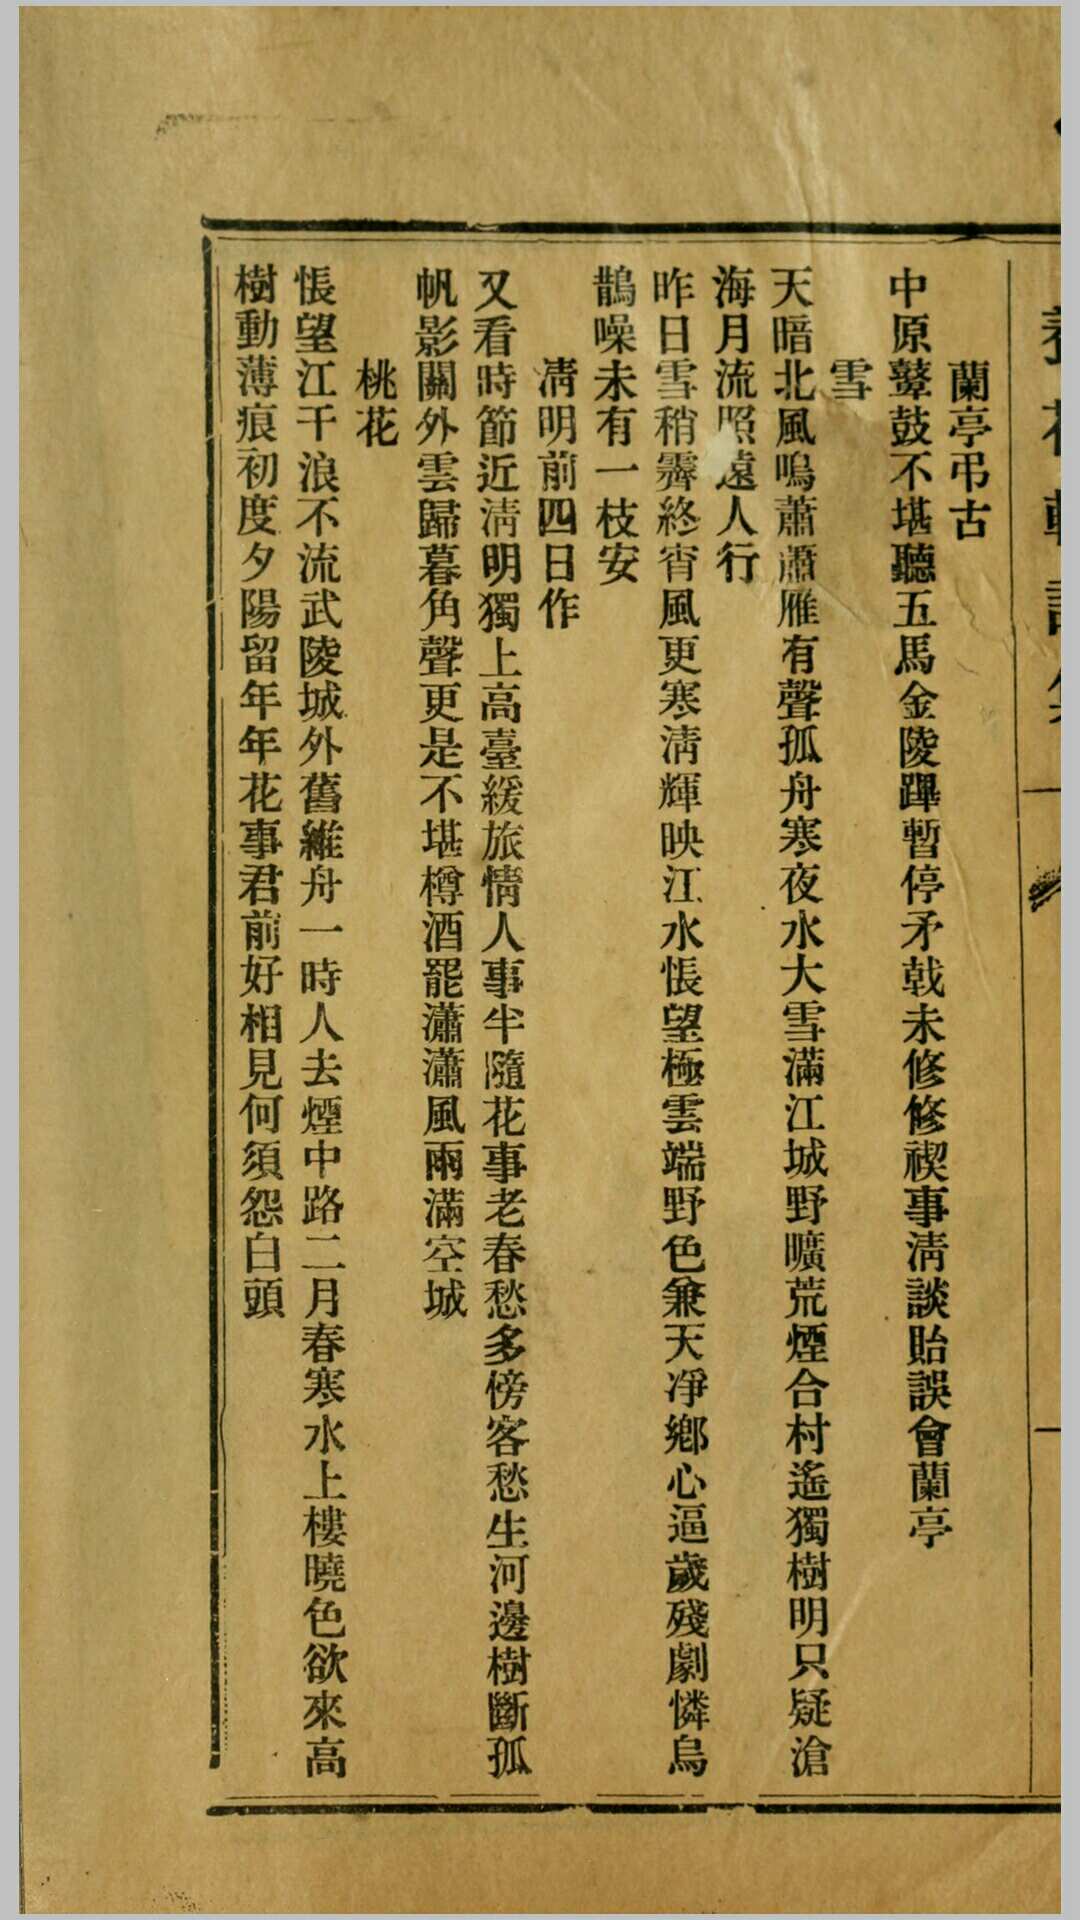 蘭亭弔古
中原鼙鼓不堪聽五馬金陵蹕暫停矛戟未修修禊事淸談貽誤會蘭亭
雪
天暗北風嗚蕭蕭雁有聲孤舟寒夜水大雪滿江城野曠荒煙合村遙獨樹明只疑滄
海月流照遠人行
昨日雪稍霽終宵風更寒淸輝映江水悵望極雲端野色兼天凈鄉心逼歲殘劇憐烏
鵲噪未有一枝安
淸明前四日作
又看時節近淸明獨上高臺緩旅情人事半隨花事老春愁多傍客愁生河邊樹斷孤
帆影關外雲歸暮角聲更是不堪樽酒罷瀟瀟風雨滿空城
桃花
悵望江干浪不流武陵城外舊維舟一時人去煙中路二月春寒水上樓曉色欲來高
樹動薄痕初度夕陽留年年花事君前好相見何須怨白頭